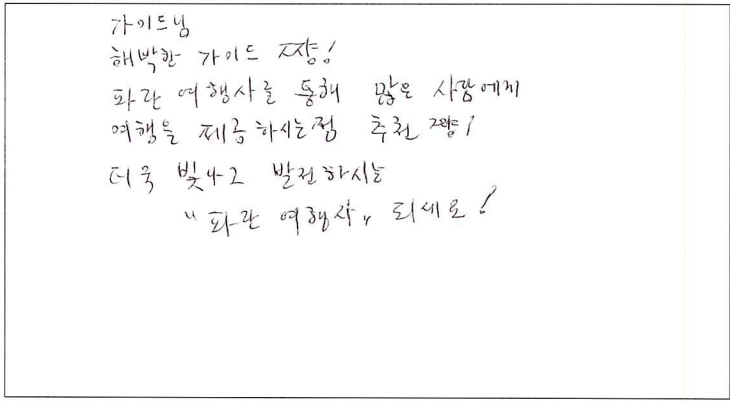 가이드님
해박한 가이드 짱!
파란 여행사를 통해 많은 사람에게
여행을 제공하시는점 추천 꽝!
더욱 빛나고 발전하시는
"파란 여행사" 되세요!